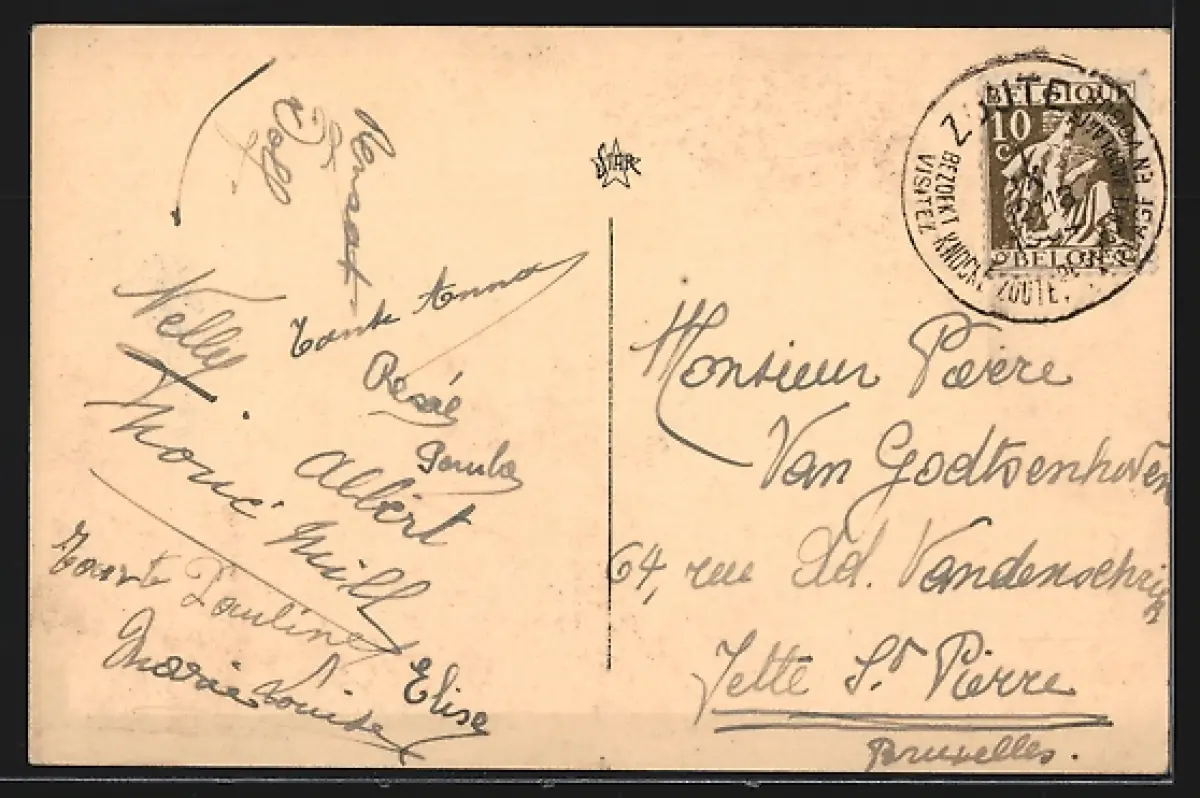 Tante Anna
Nelly
Albert
Paula
Tante Pauline
Marie Louise
Elise
STAR
ZOUTE
BEZOEKT KNOCKE ZOUTE.
VISITEZ
BELGIQUE
10
c
BELGIË
Monsieur Pierre
Van Godtsenhoven
64, rue Ad. Vandenschrick
Jette St Pierre
Bruxelles.